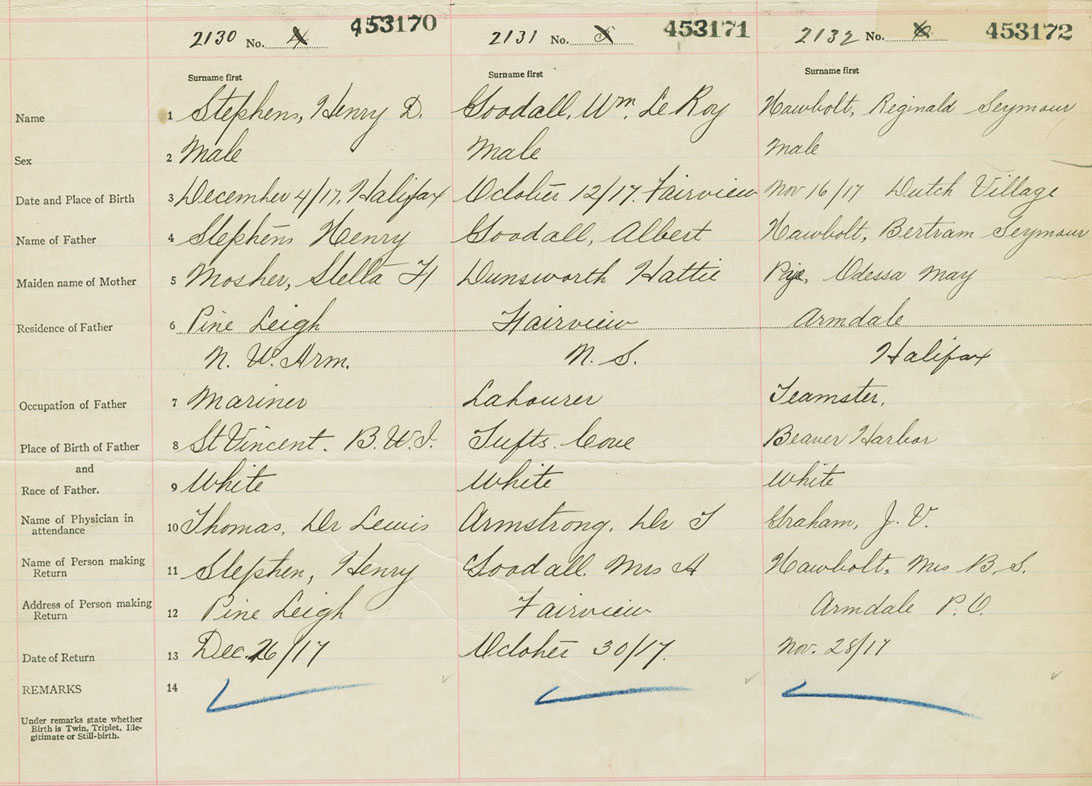 2130 No. 4 453170 2131 No. 5 453171 2132 No. 6 453172
Surname first Surname first Surname first
Name 1 Stephens, Henry D. Goodall, Wm. Le Roy Hawbolt, Reginald Seymour
Sex 2 Male Male Male
Date and Place of Birth 3 December 4/17. Halifax October 12/17. Fairview Nov 16/17 Dutch Village
Name of Father 4 Stephens Henry Goodall, Albert Hawbolt, Bertram Seymour
Maiden name of Mother 5 Mosher, Stella H Dunsworth Hattie Odessa May
Residence of Father 6 Pine Leigh Fairview Armdale
N. W. Arm. N. S. Halifax
Occupation of Father 7 Mariner Labourer Teamster,
Place of Birth of Father 8 St Vincent. B.W.I. Tufts Cove Beaver Harbor
and
Race of Father. 9 White White White
Name of Physician in
attendance 10 Thomas, Dr Lewis Armstrong, Dr Graham, J. V.
Name of Person making
Return 11 Stephen, Henry Goodall. Mrs A Hawbolt, Mrs B. S.
Address of Person making
Return 12 Pine Leigh Fairview Armdale P.O.
Date of Return 13 Dec. 26/17 October 30/17. Nov. 28/17
REMARKS 14
Under remarks state whether
Birth is Twin, Triplet, Ille-
gitimate or Still-birth.